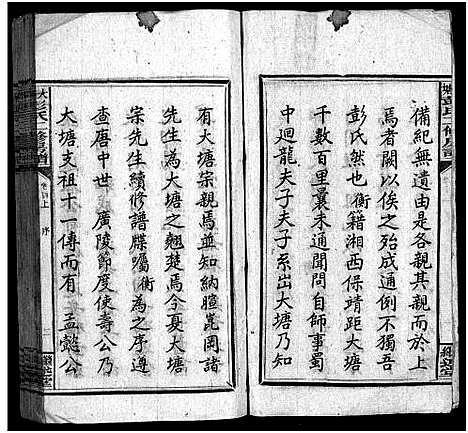 備紀無遺由是各親其親而於上
焉者闕以俟之殆成通例不獨吾
彭氏然也衡籍湘西保靖距大塘
千數百里曩未通聞問自師事蜀
中迴龍夫子夫子系出大塘乃知
有大塘宗親焉並知納暄崑岡諸
先生為大塘之翹楚焉今夏大塘
宗先生續修譜牒囑衡為之序遵
查唐中世廣陵節度使壽公乃
大塘支祖十一傳而有孟懿公
大彭氏二修房譜
卷首上
序